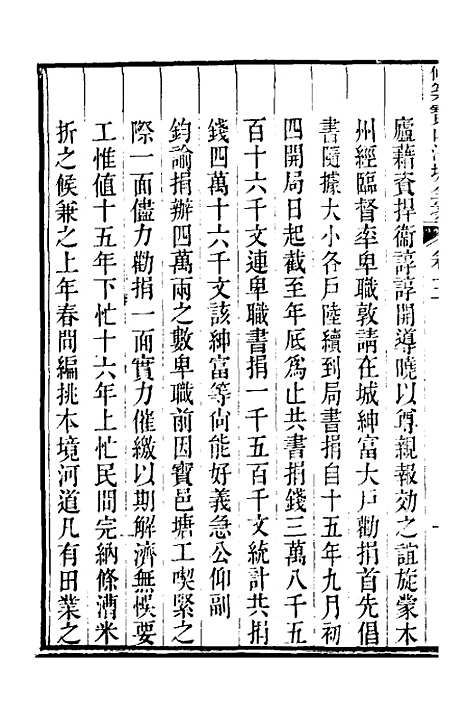 廬藉資捍衞諄諄開導曉以尊親報効之誼旋蒙本
州經臨督率卑職敦請在城紳富大戶勸捐首先倡
書隨據大小各戶陸續到局書捐自十五年九月初
四開局日起截至年底為止共書捐錢三萬八千五
百十六千文連卑職書捐一千五百千文統計共捐
錢四萬十六千文該紳富等尚能好義急公仰副
鈞諭捐辦四萬兩之數卑職前因寶邑塘工喫緊之
際一面儘力勸捐一面實力催繳以期解濟無悞要
工惟值十五年下忙十六年上忙民間完納條漕米
折之候兼之上年春間編挑本境河道凡有田業之